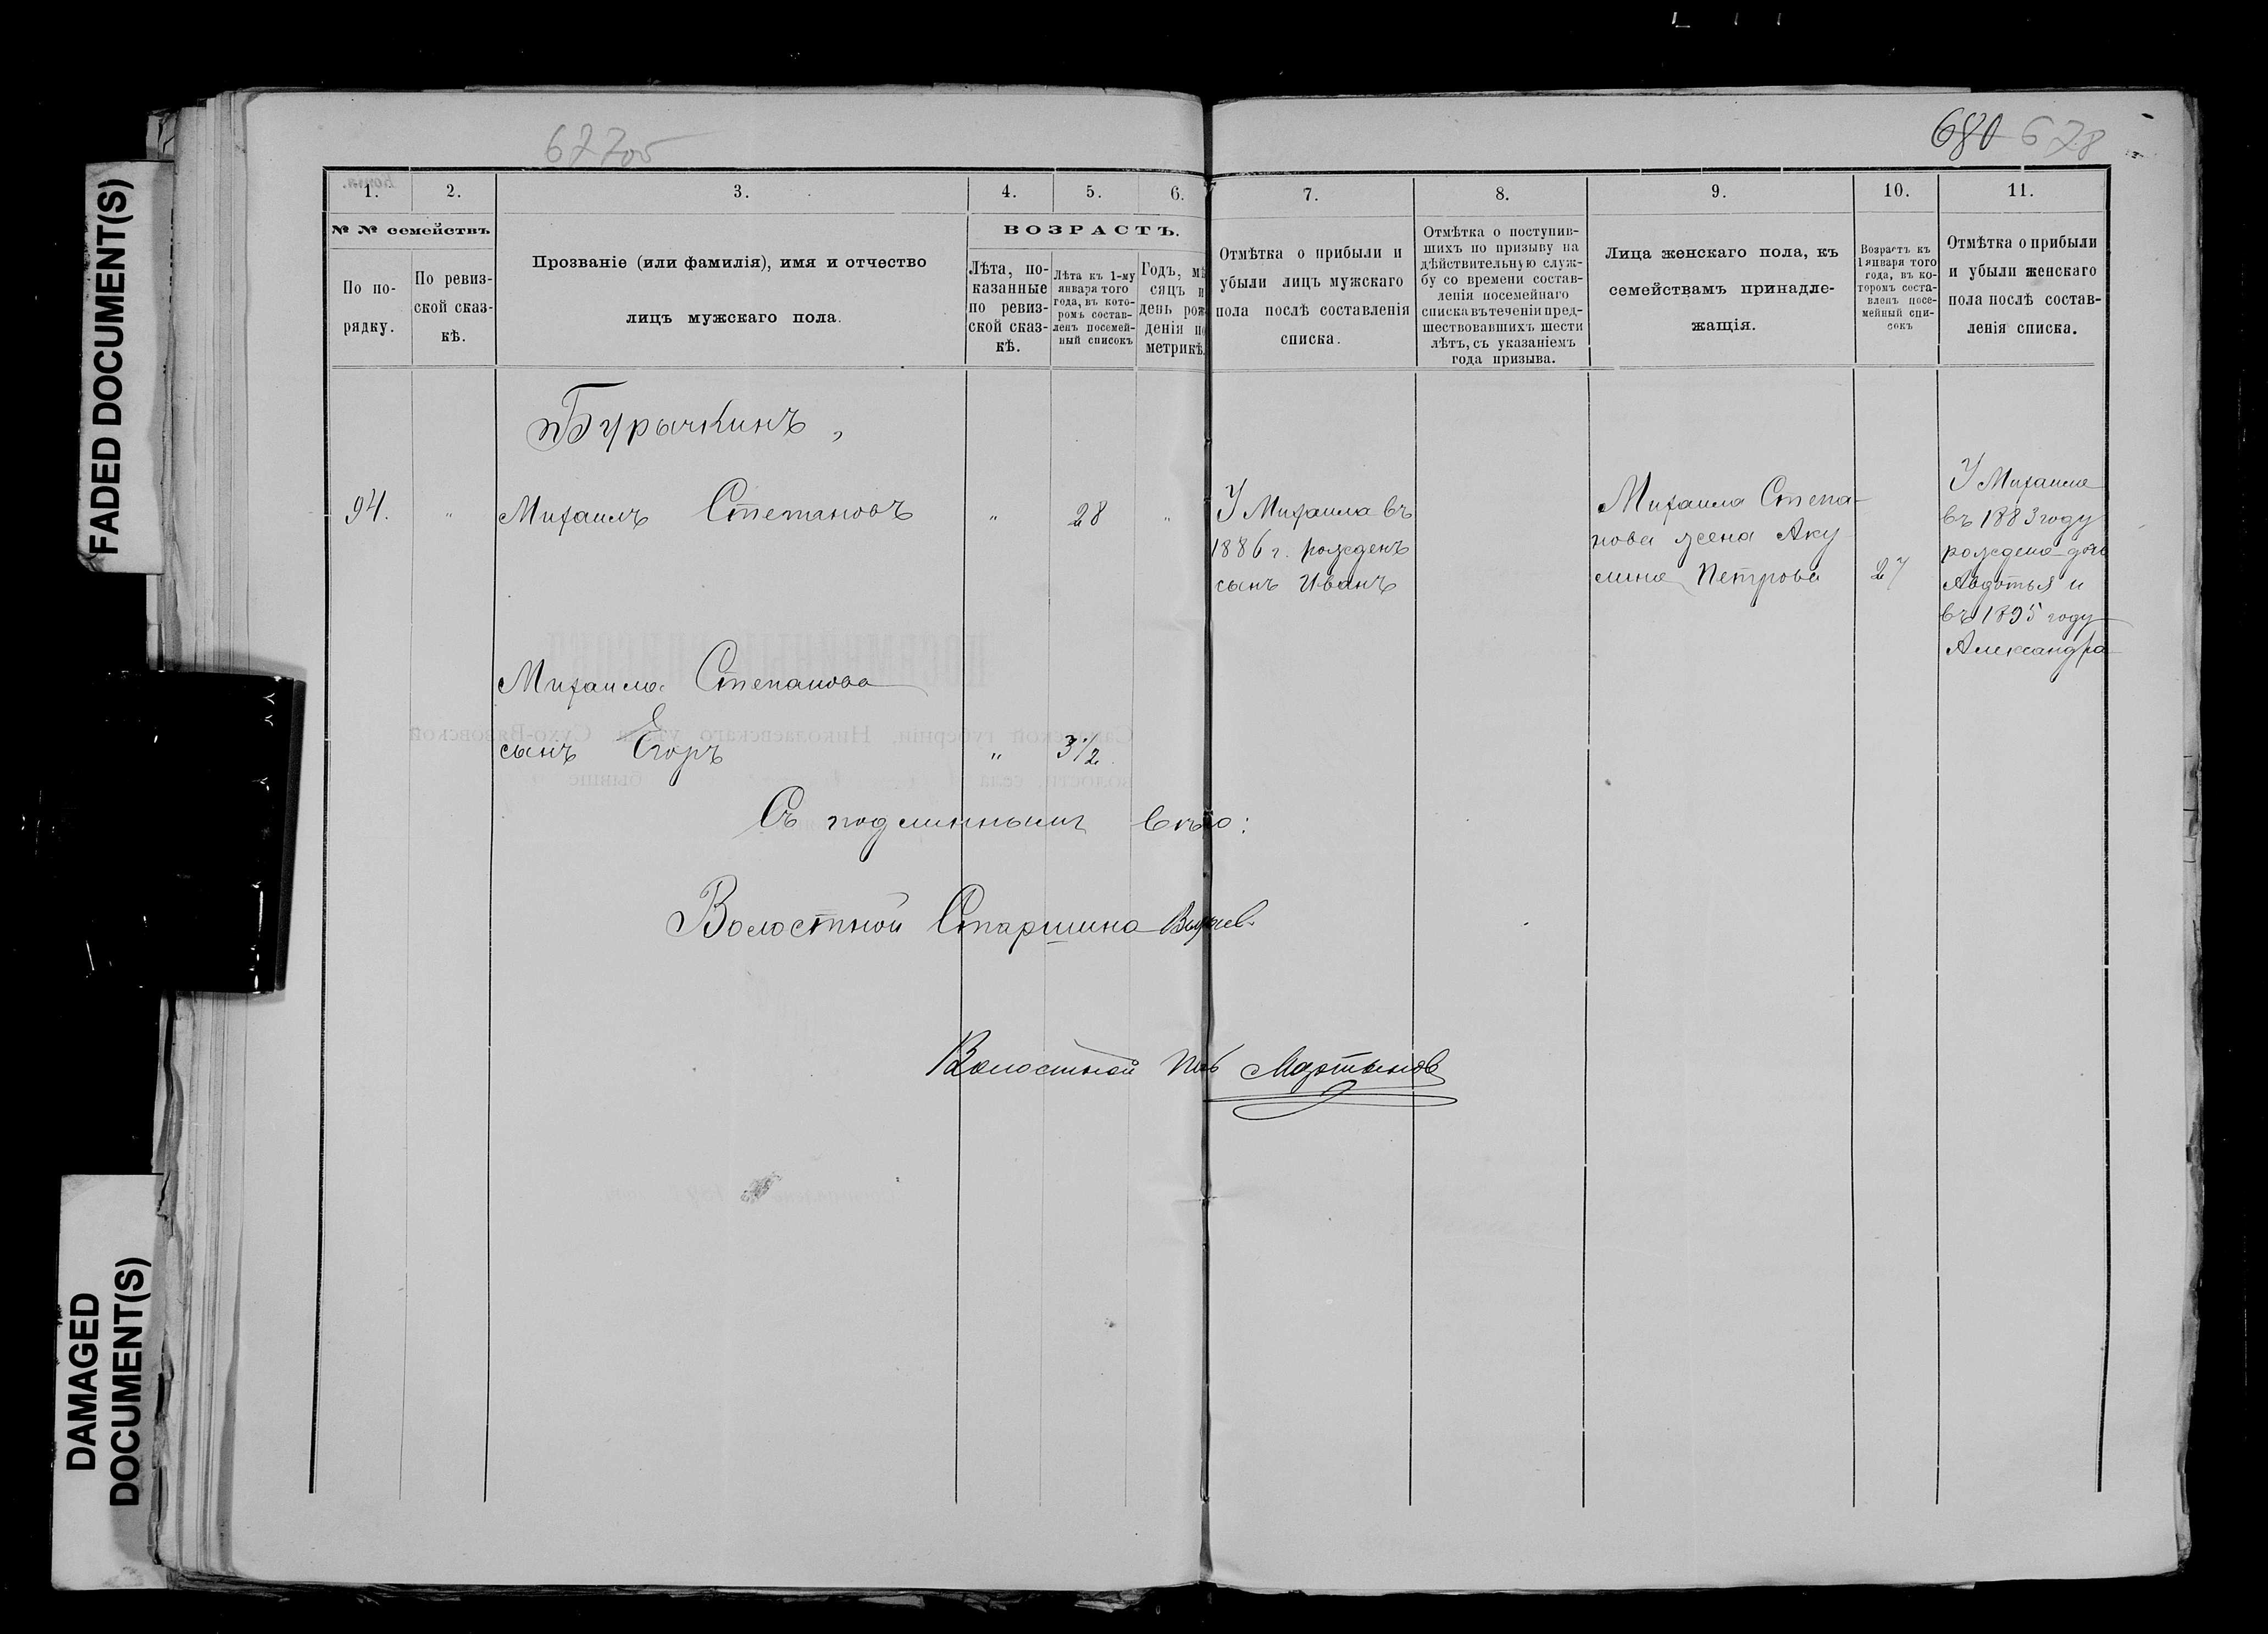 FADED DOCUMENT(S)
DAMAGED
DOCUMENT(S)
680 678
1.
2.
3.
4.
5.
6.
7.
8.
9.
10.
11.
№ № семействъ
По по-
рядку.
По ревиз-
ской сказ-
кѣ.
Прозваніе (или фамилія), имя и отчество
лицъ мужскаго пола.
ВОЗРАСТЪ.
Лѣта, по-
казанные
по ревиз-
ской сказ-
кѣ.
Лѣта къ 1-му
января того
года, въ кото-
ромъ состав-
ленъ посемей-
ный списокъ
Годъ, мѣ
сяцъ и
день рож
денія по
метрикѣ.
Отмѣтка о прибыли и
убыли лицъ мужскаго
пола послѣ составленія
списка.
Отмѣтка о поступив-
шихъ по призыву на
дѣйствительную служ-
бу со времени состав-
ленія посемейнаго
списка въ теченіи пред-
шествовавшихъ шести
лѣтъ, съ указаніемъ
года призыва.
Лица женскаго пола, къ
семействамъ принадле-
жащія.
Возрастъ къ
1 января того
года, въ ко-
торомъ соста-
вленъ посе-
мейный спи-
сокъ
Отмѣтка о прибыли
и убыли женскаго
пола послѣ состав-
ленія списка.
Бурычкинъ,
94. " Михаилъ Степановъ " 28 "
У Михаила въ
1886 г. рожденъ
сынъ Иванъ
Михаила Степа-
нова жена Аку
лина Петрова 27
У Михаила
въ 1883 году
рождена дочь
Авдотья и
въ 1895 году
Александра
Михаила Степанова
сынъ Егоръ " 3 1/2
Съ подлиннымъ вѣрно:
Волостной Старшина
Волостной Мартынов